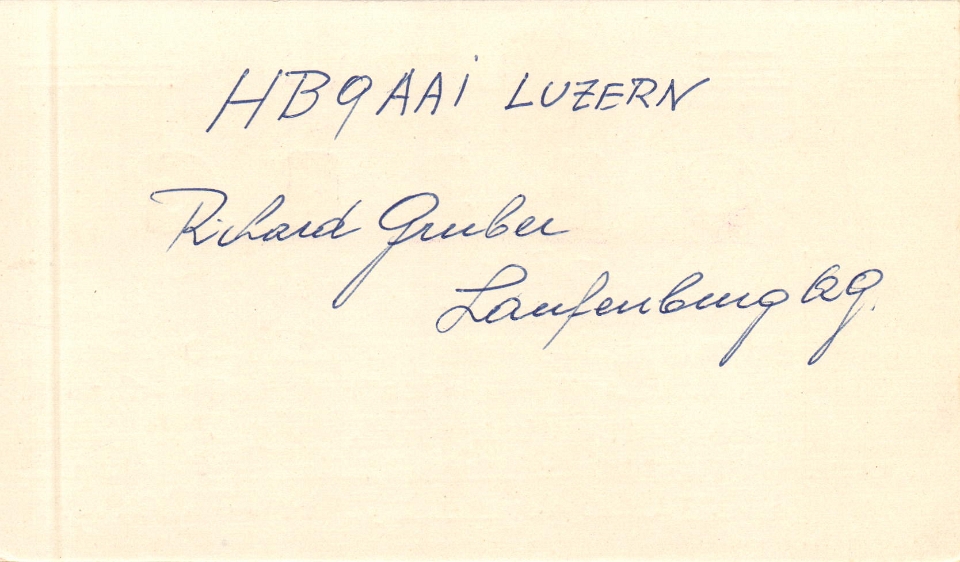 HB9AAi LUZERN
Richard Gruber
Laufenburg Ag.